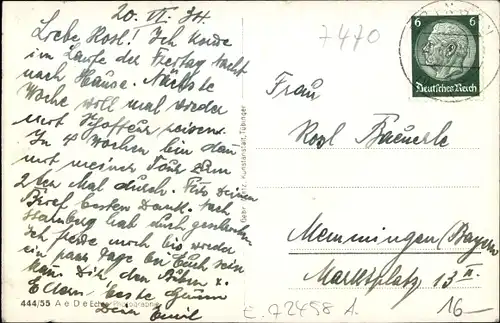 20. VI. 34.
Liebe Rosl! Ich
im Laufe der Freitag Nacht
nach Hause. Nächste
Woche will mal wieder
mit reisen.
In 4 Wochen bin dann
mit meiner Tour zum
2ten Mal durch. Für Deinen
Brief besten Dank. Nach
Hamburg hab ich geschrieben
Ich freue mich bis wieder
ein paar Tage bei Euch sein
kann. Dir, den Buben u.
Eltern beste Grüsse
Dein Emil
444/55 A e D e Echte Photographie
Gebr. Metz, Kunstanstalt, Tübingen
7470
6 6
Deutsches Reich
Frau
Rosl Baeuerle
Memmingen (Bayern
Marktplatz 13 II
16-